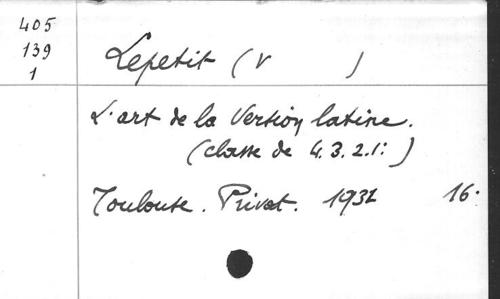 405
139
1
Lepetit (V      )
L'art de la Version latine.
(classe de 4.3.2.1: )
Toulouse. Privat. 1932 16: